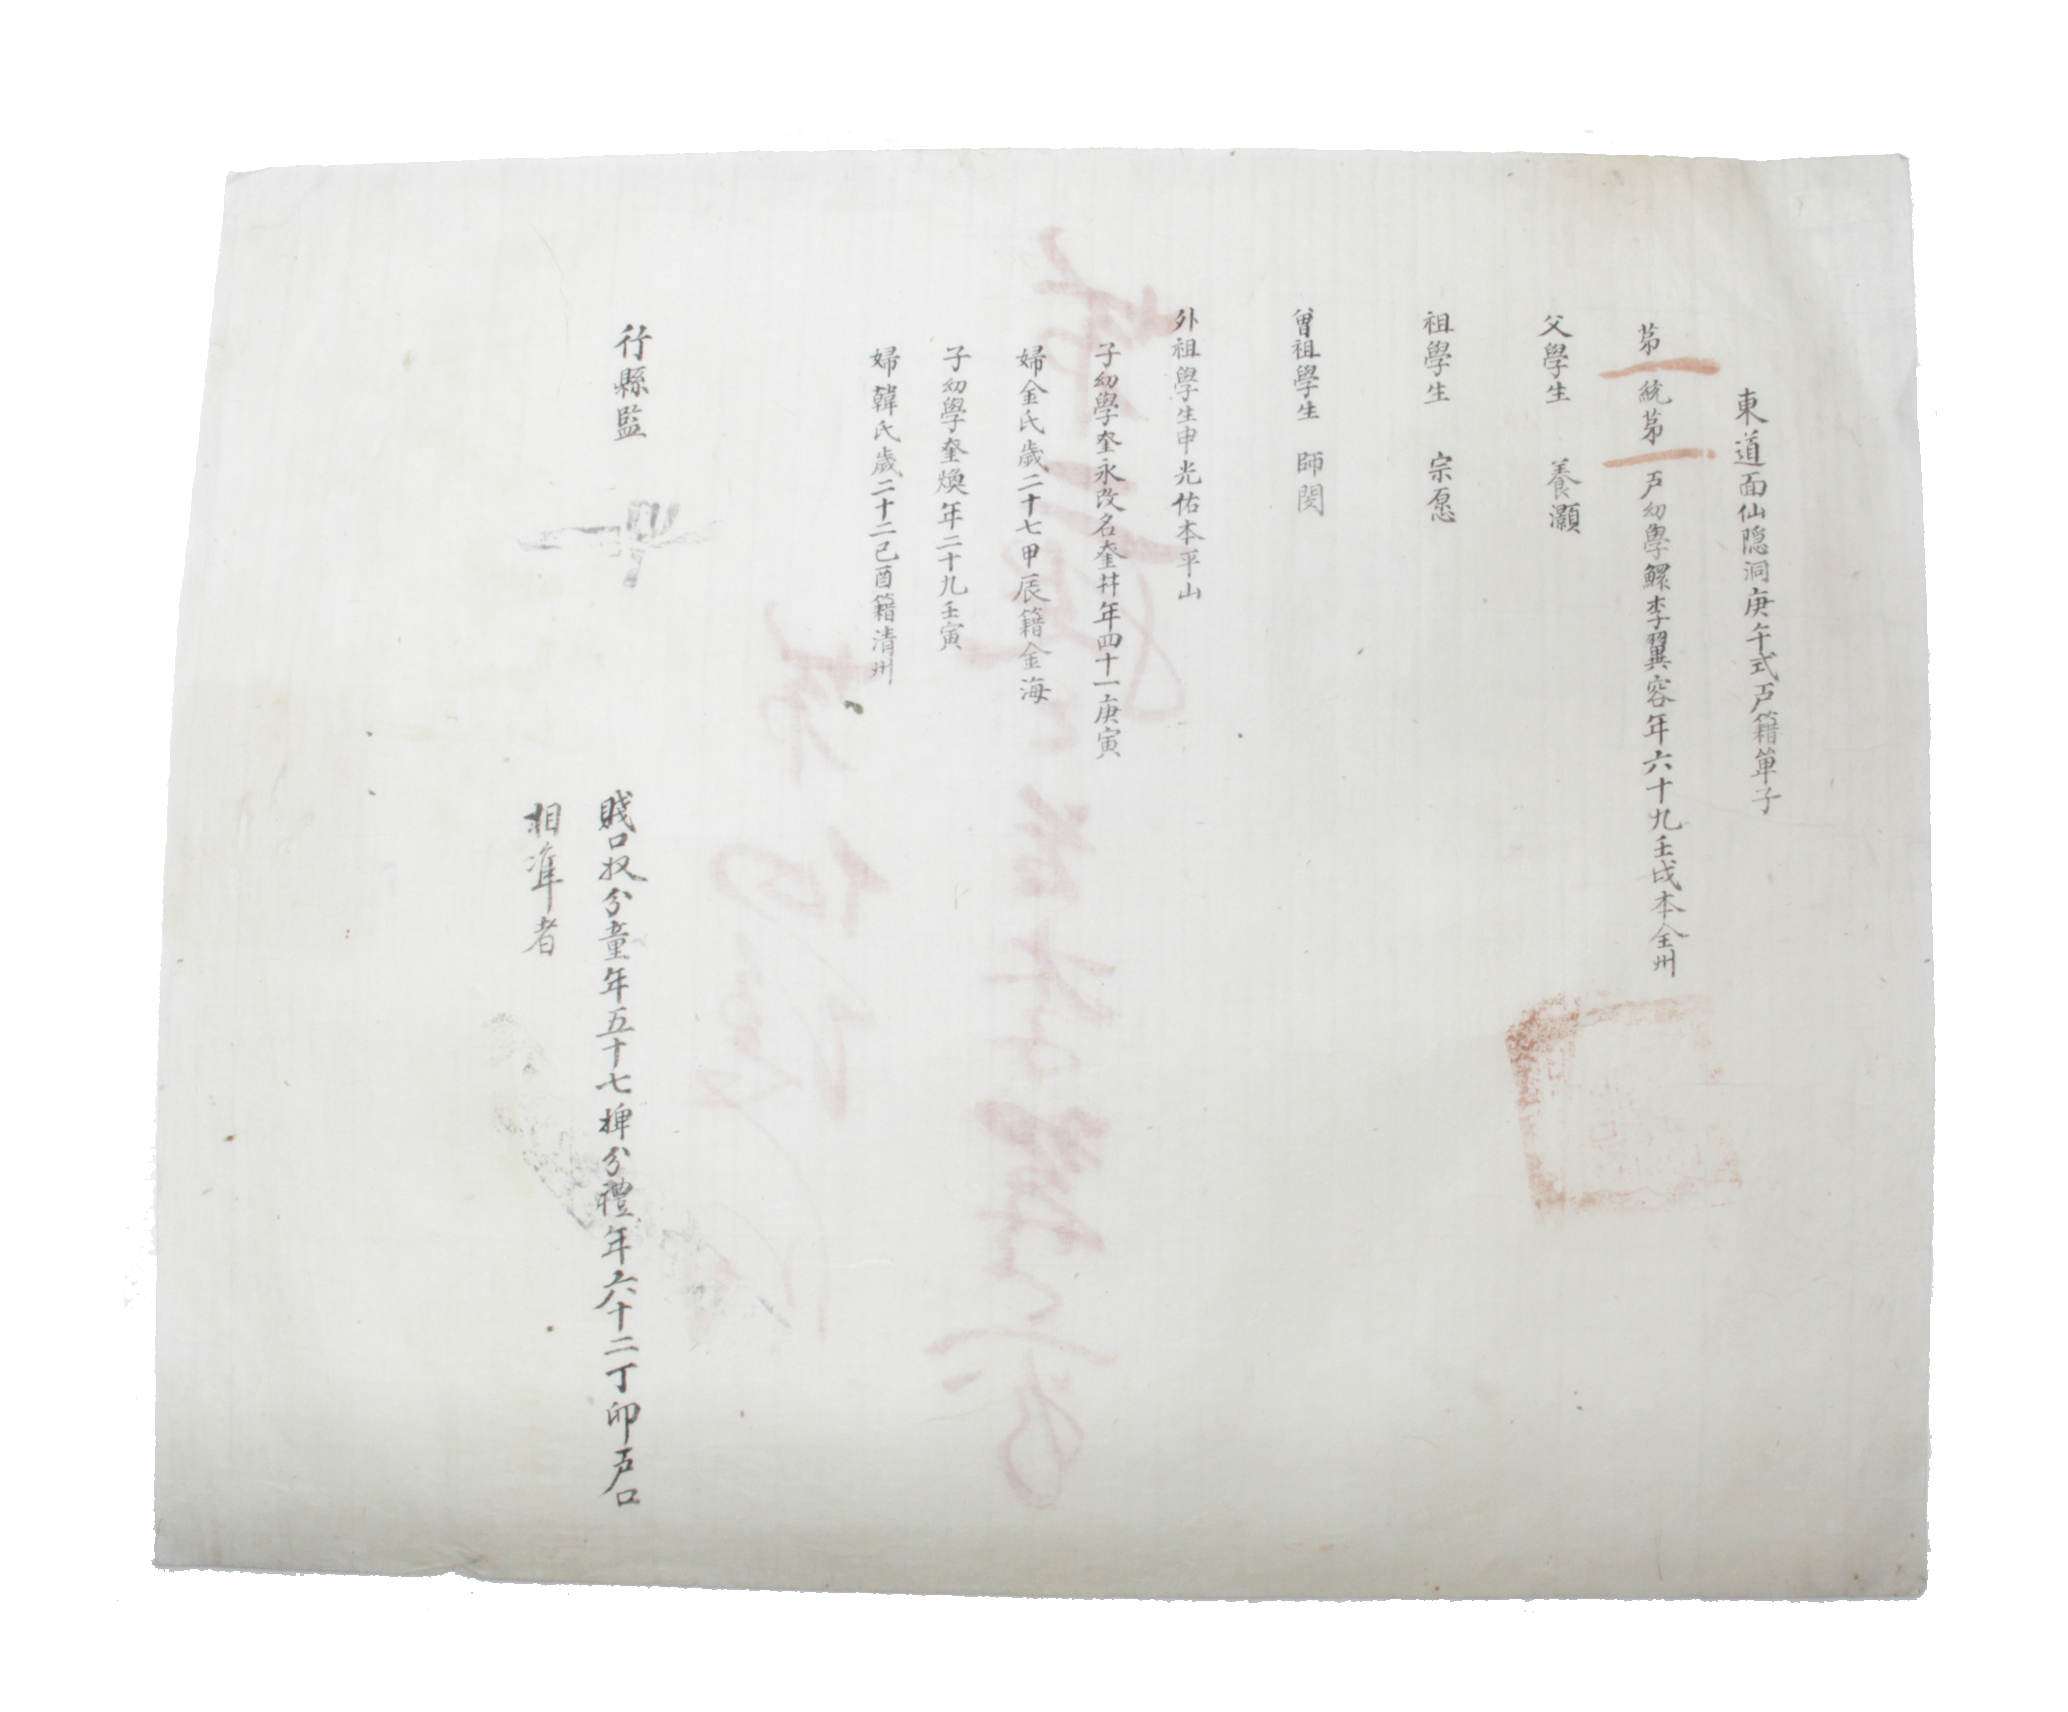 東道面仙隐洞庚午式戸籍單子
苐一統苐一戸幼學鰥李翼容年六十九壬戌本全州
父學生 養灝
祖學生 宗愿
曾祖學生 師閔
外祖學生申光佑本平山
子幼學奎永改名奎井年四十一庚寅
婦金氏歲二十七甲辰籍金海
子幼學奎煥年二十九壬寅
婦韓氏歲二十二己酉籍清州
行縣監
賤口奴分童年五十七婢分禮年六十二丁卯戸口
相凖者